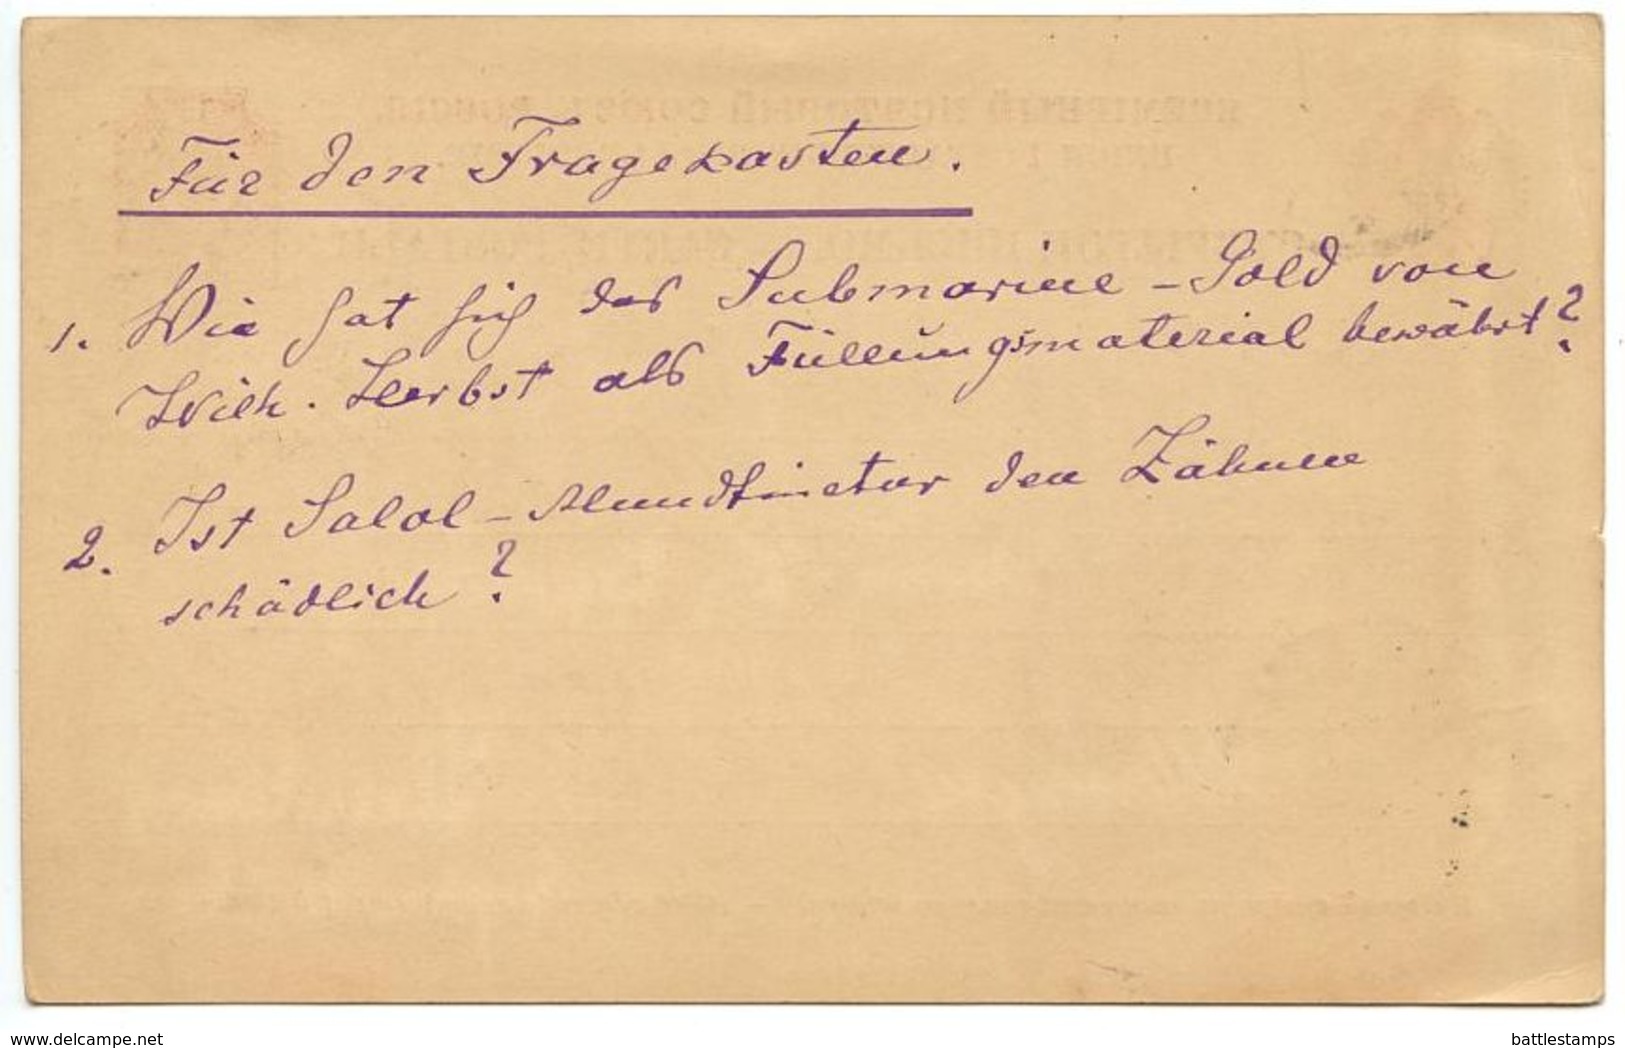 Für den Fragekasten.
1. Wie hat sich das Submarine-Gold von
Wilh. Herbst als Füllungsmaterial bewährt?
2. Ist Salol-Mundtinctur den Zähnen
schädlich?
www.delcampe.net
battlestamps